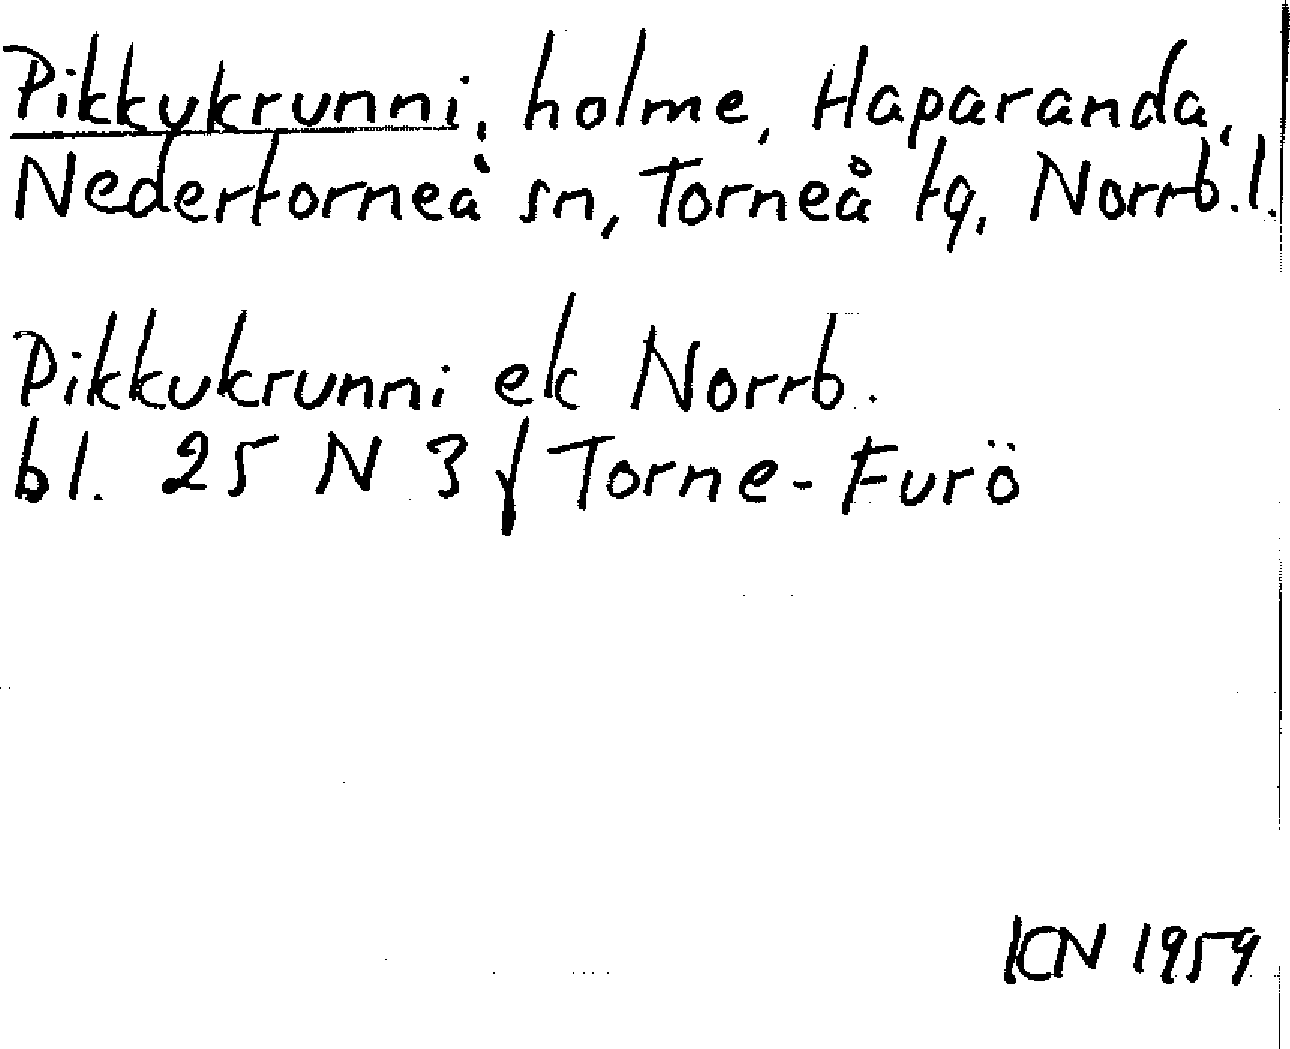 Pikkykrunni, holme, Haparanda,
Nedertorneå sn, Torneå tg, Norrb.l.
Pikkukrunni ek Norrb.
bl. 25 N 3 f Torne-Furö
KN 1959